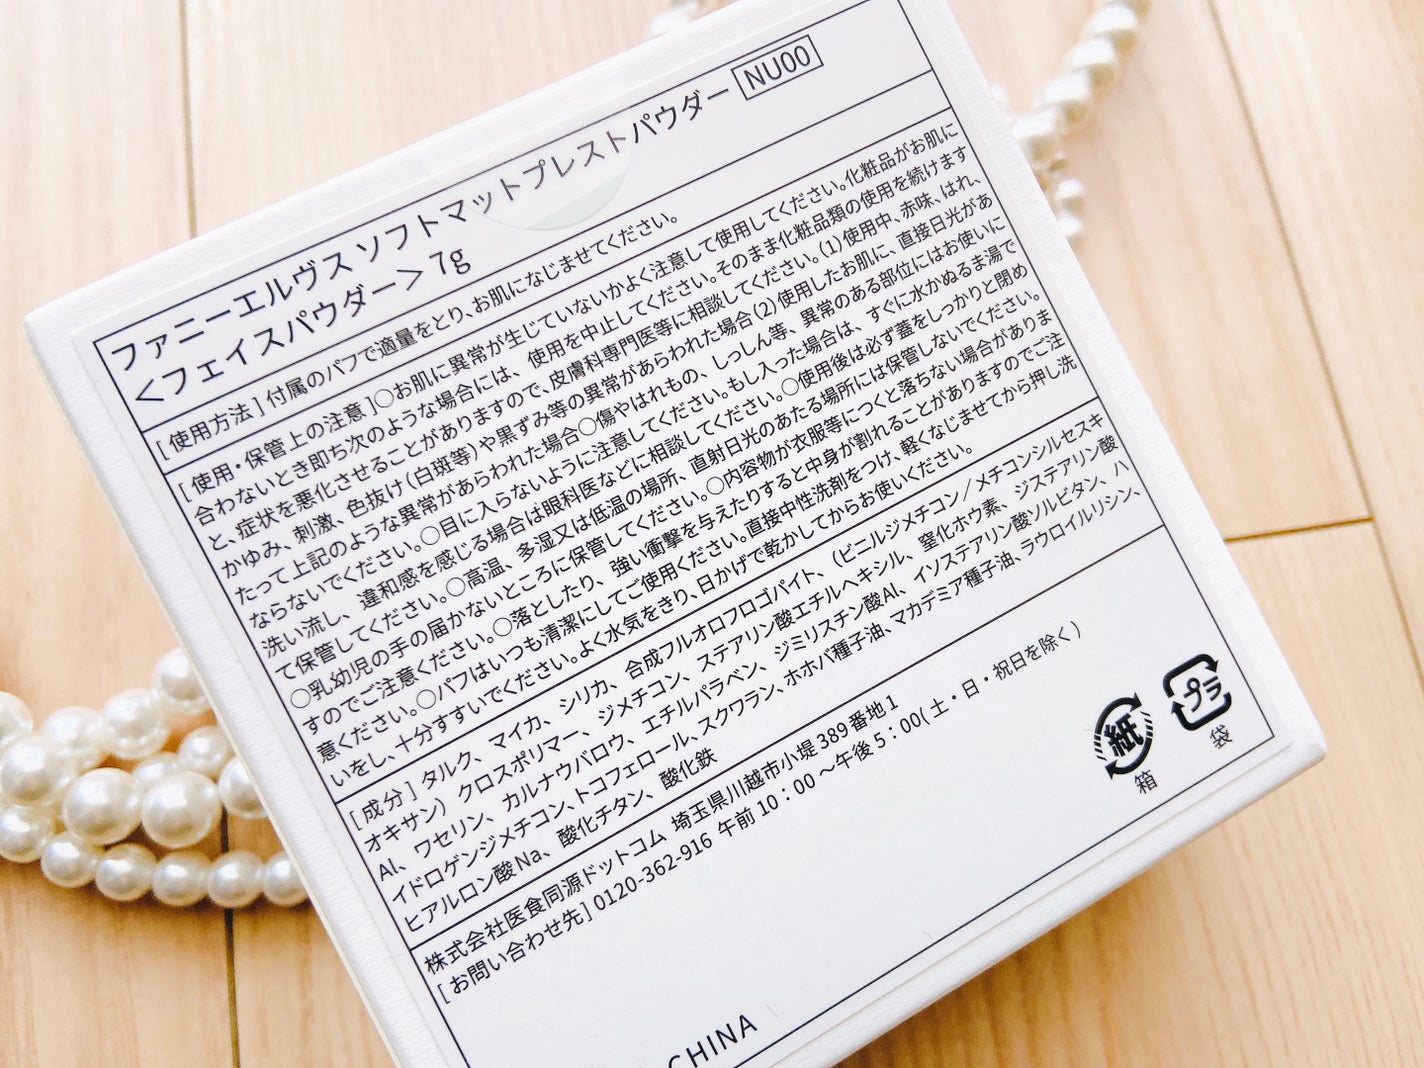 ファニーエルヴス ソフトマットプレストパウダー NU00
＜フェイスパウダー＞ 7g
[使用方法]付属のパフで適量をとり、お肌になじませてください。
[使用・保管上の注意]○お肌に異常が生じていないかよく注意して使用してください。化粧品がお肌に
合わないとき即ち次のような場合には、使用を中止してください。そのまま化粧品類の使用を続けます
と、症状を悪化させることがありますので、皮膚科専門医等に相談してください。(1)使用中、赤味、はれ、
かゆみ、刺激、色抜け(白斑等)や黒ずみ等の異常があらわれた場合(2)使用したお肌に、直接日光があ
たって上記のような異常があらわれた場合○傷やはれもの、しっしん等、異常のある部位にはお使いに
ならないでください。○目に入らないように注意してください。もし入った場合は、すぐに水かぬるま湯で
洗い流し、違和感を感じる場合は眼科医などに相談してください。○使用後は必ず蓋をしっかりと閉め
て保管してください。○高温、多湿又は低温の場所、直射日光のあたる場所には保管しないでください。
○乳幼児の手の届かないところに保管してください。○内容物が衣服等につくと落ちない場合がありま
すのでご注意ください。○落としたり、強い衝撃を与えたりすると中身が割れることがありますのでご注
意ください。○パフはいつも清潔にしてご使用ください。直接中性洗剤をつけ、軽くなじませてから押し洗
いをし、十分すすいでください。よく水気をきり、日かげで乾かしてからお使いください。
[成分]タルク、マイカ、シリカ、合成フルオロフロゴパイト、(ビニルジメチコン／メチコンシルセスキ
オキサン)クロスポリマー、ジメチコン、ステアリン酸エチルヘキシル、窒化ホウ素、ジステアリン酸
Al、ワセリン、カルナウバロウ、エチルパラベン、ジミリスチン酸Al、イソステアリン酸ソルビタン、ハ
イドロゲンジメチコン、トコフェロール、スクワラン、ホホバ種子油、マカデミア種子油、ラウロイルリシン、
ヒアルロン酸Na、酸化チタン、酸化鉄
株式会社医食同源ドットコム 埼玉県川越市小堤389番地1
[お問い合わせ先]0120-362-916 午前10：00～午後5：00(土・日・祝日を除く)
紙
箱
プラ
袋
CHINA